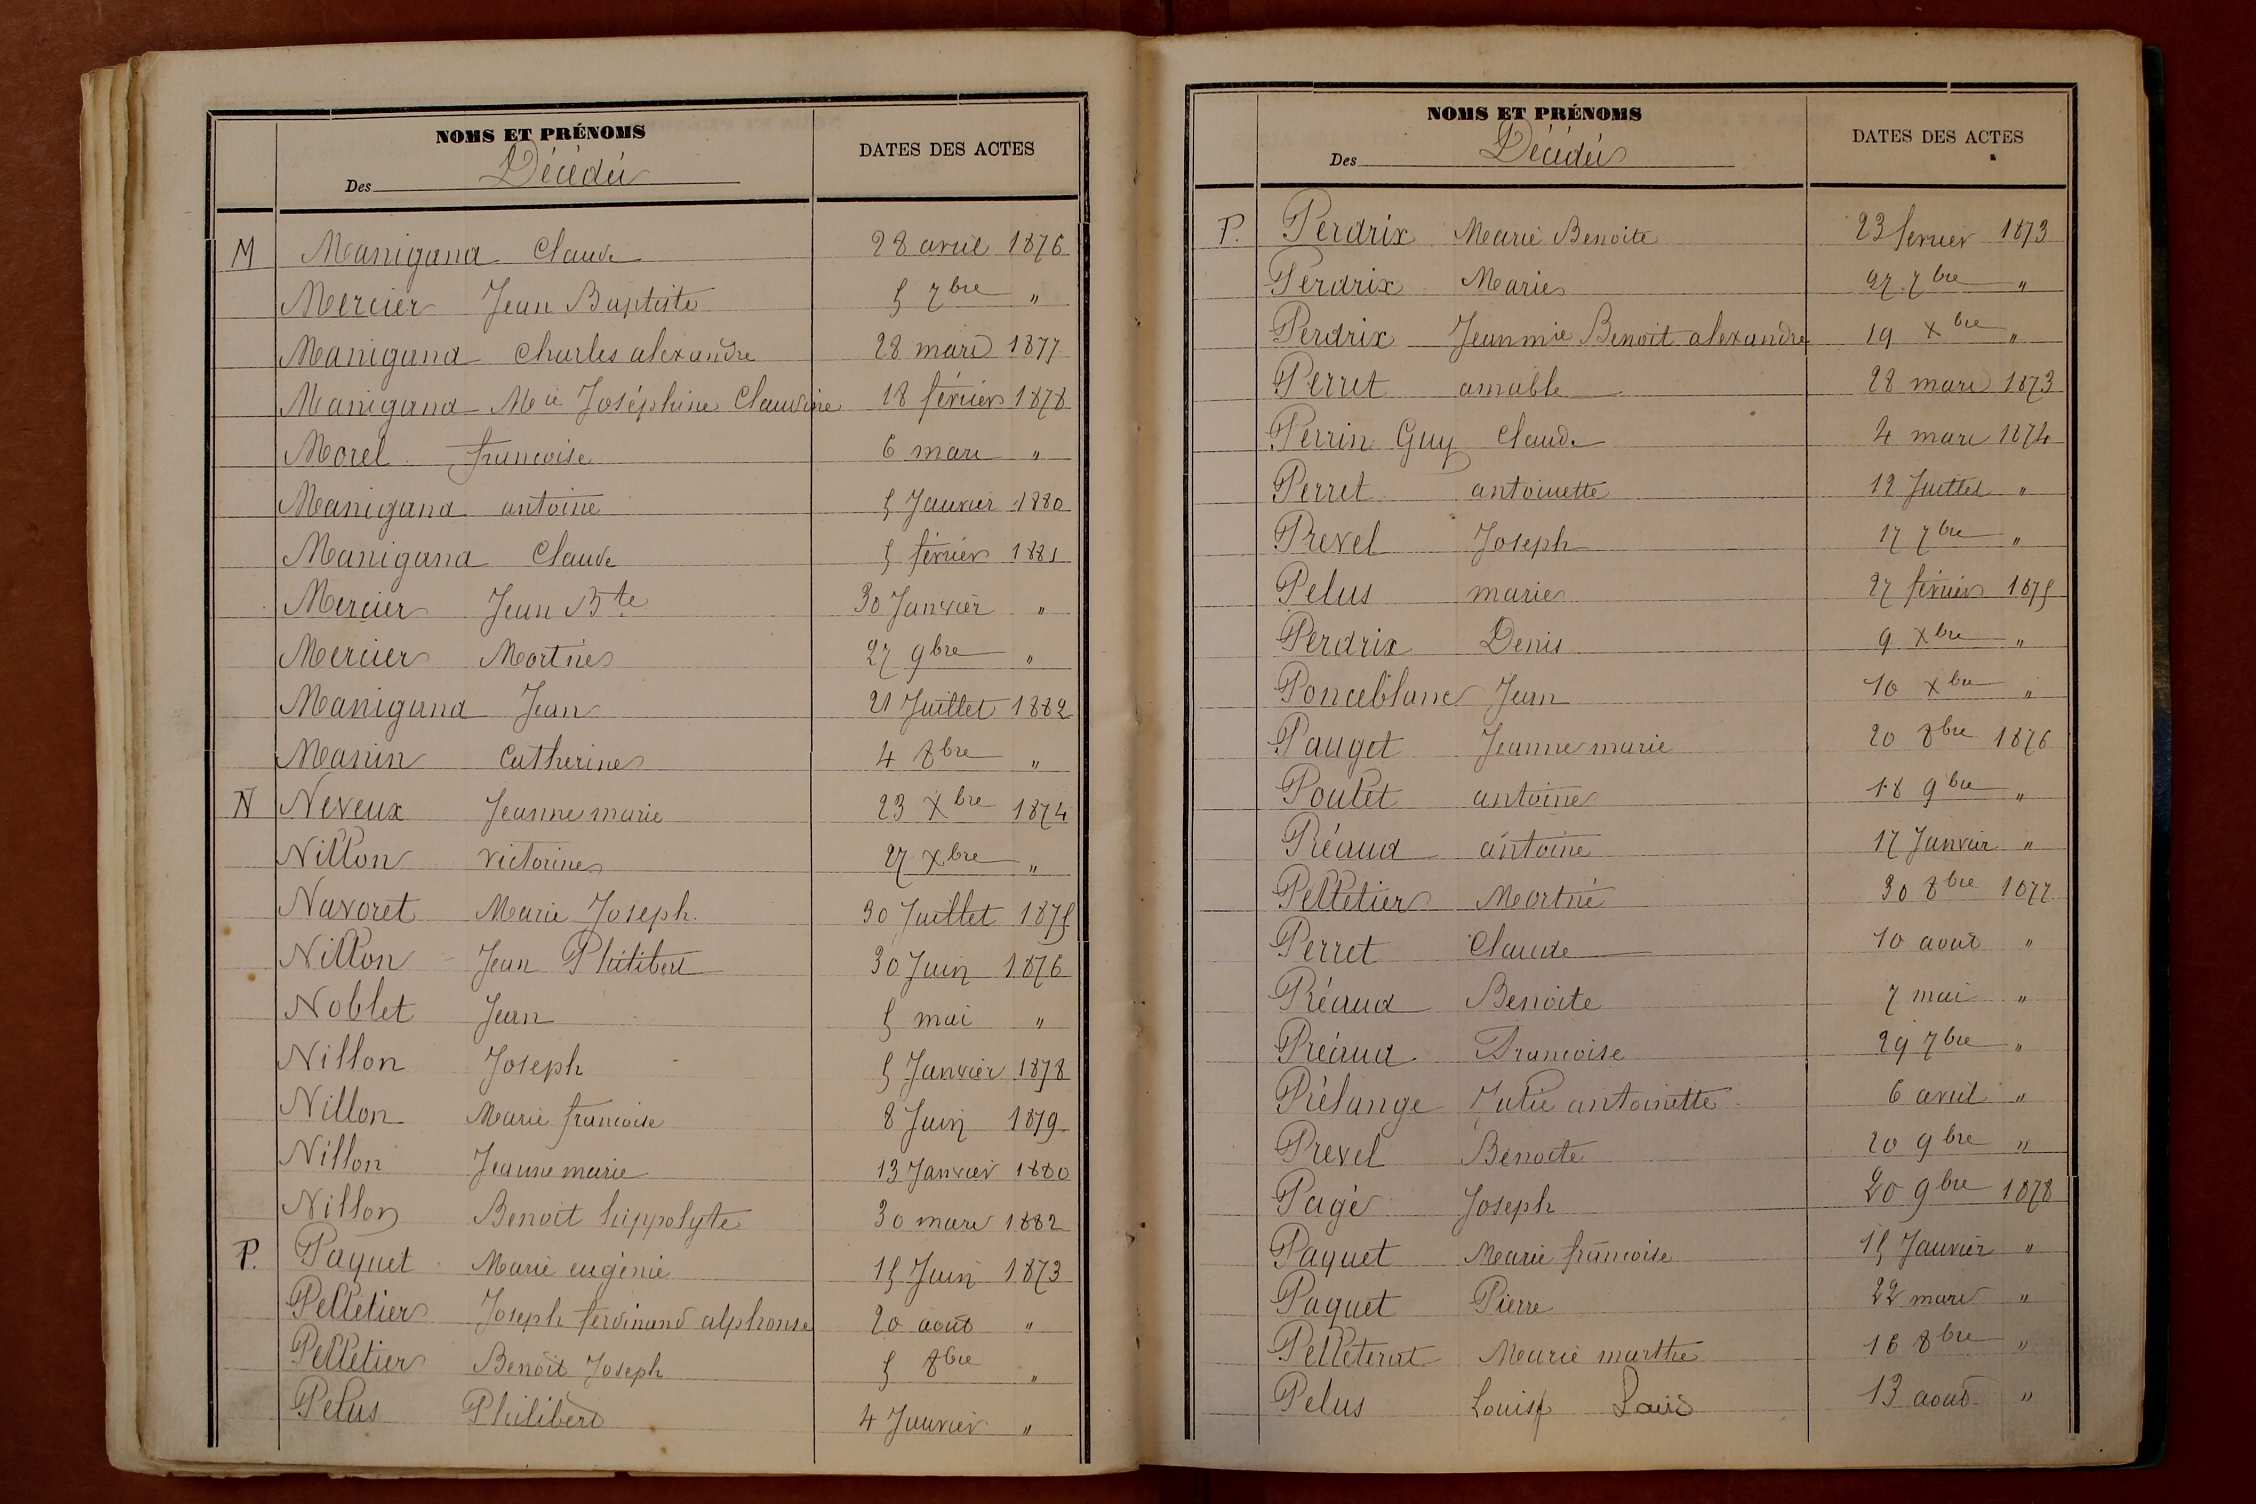 NOMS ET PRÉNOMS
Des Décédés
DATES DES ACTES
M Manigand Claude 28 avril 1876
Mercier Jean Baptiste 5 7bre "
Manigand Charles alexandre 28 mars 1877
Manigand Mie Joséphine Claudine 18 février 1878
Morel francoise 6 mars "
Manigand antoine 5 Janvier 1880
Manigand Claude 5 février 1881
Mercier Jean Bte 30 Janvier "
Mercier Mortné 27 9bre "
Manigand Jean 21 Juillet 1882
Manin Catherine 4 8bre "
N Neveux Jeanne marie 23 Xbre 1874
Nillon victorine 27 xbre "
Navoret Marie Joseph. 30 Juillet 1875
Nillon Jean Philibert 30 Juin 1876
Noblet Jean 5 mai "
Nillon Joseph 5 Janvier 1878
Nillon Marie francoise 8 Juin 1879
Nillon Jeanne marie 13 Janvier 1880
Nillon Benoit hippolyte 30 mars 1882
P. Paquet Marie eugénie 15 Juin 1873
Pelletier Joseph ferdinand alphonse 20 août "
Pelletier Benoit Joseph 5 8bre "
Pelus Philibert 4 Janvier "
NOMS ET PRÉNOMS
Des Décédés
DATES DES ACTES
P. Perdrix Marie Benoite 23 fevrier 1873
Perdrix Marie 27 7bre "
Perdrix Jeanmie Benoit alexandre 19 xbre "
Perret amable 28 mars 1873
Perrin Guy Claude 4 mars 1874
Perret antoinette 12 Juillet "
Prevel Joseph 17 7bre "
Pelus marie 27 février 1875
Perdrix Denis 9 Xbre "
Ponceblanc Jean 10 xbre "
Pauget Jeanne marie 20 8bre 1876
Poulet antoine 18 9bre "
Préaud antoine 17 Janvier "
Pelletier Mortné 30 8bre 1877
Perret Claude 10 aout "
Préaud Benoite 7 mai "
Préaud Francoise 29 7bre "
Prélange Julie antoinette 6 avril "
Prevel Benoite 20 9bre "
Pagé Joseph 20 9bre 1878
Paquet Marie francoise 15 Janvier "
Paquet Pierre 22 mars "
Pelleterat Marie marthe 16 8bre "
Pelus Louis Louis 13 aout "